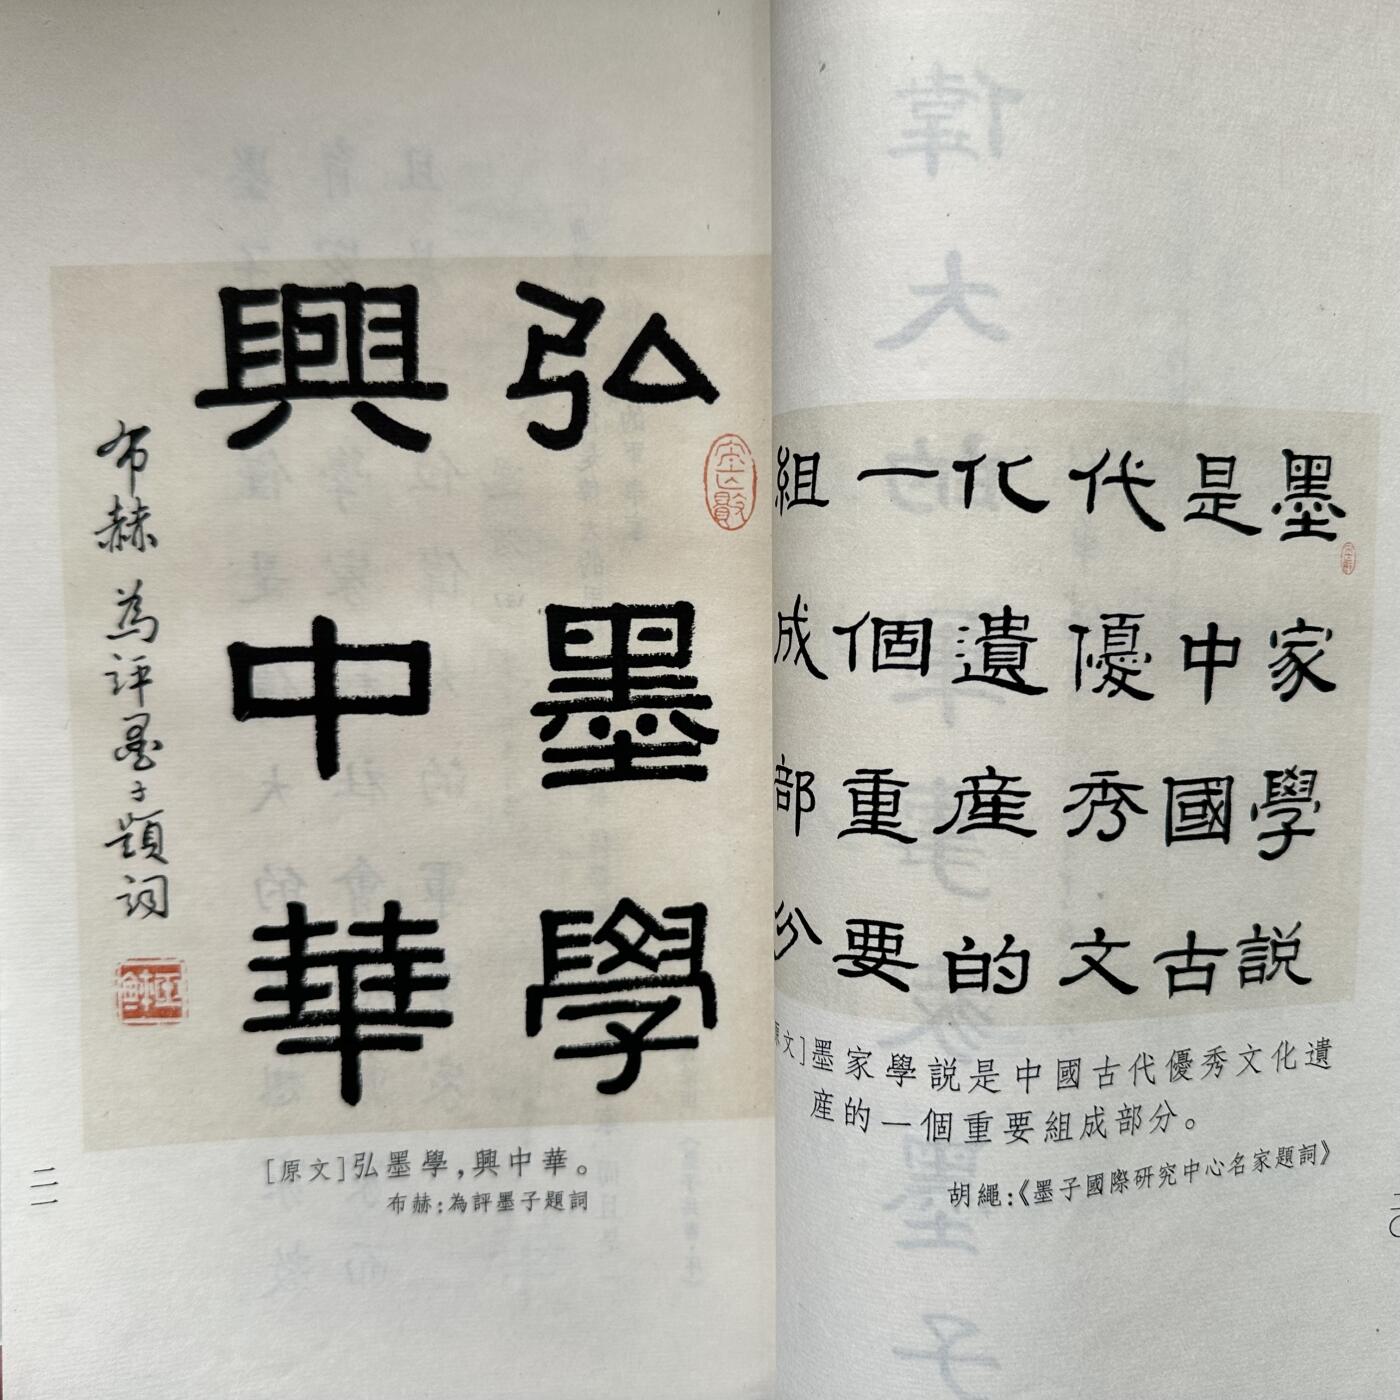 墨家學説
是中國古
代優秀文
化遺産的
一個重要
組成部分
[原文]墨家學説是中國古代優秀文化遺
産的一個重要組成部分。
胡繩:《墨子國際研究中心名家題詞》
弘墨學
興中華
布赫 為評墨子題詞
[原文]弘墨學,興中華。
布赫:為評墨子題詞
二一